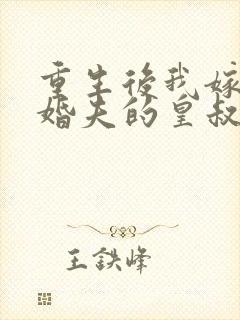 重生後我嫁
婚夫的皇叔
王鉄峰